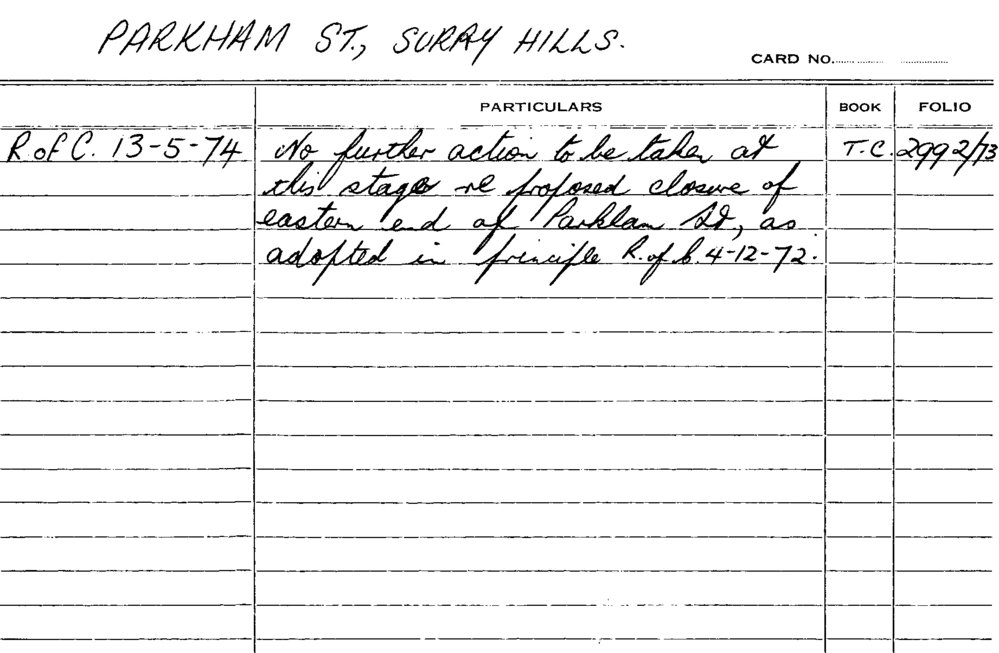 PARKHAM ST., SURRY HILLS.
CARD No.
PARTICULARS BOOK FOLIO
R. of C. 13-5-74 No further action to be taken at T.C. 2992/73
this stage re proposed closure of
eastern end of Parkham St., as
adopted in principle R. of C. 4-12-72.